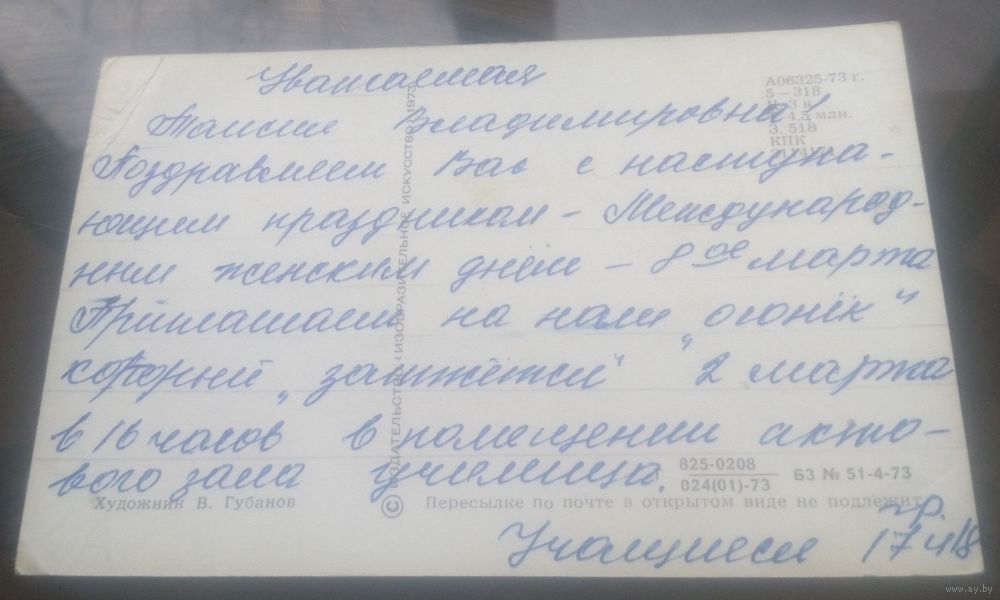 Уважаемая
Таисия Владимировна!
Поздравляем Вас с наступа-
ющим праздником - Международ-
ным женским днём - 8ое марта
Приглашаем на наш "огонёк"
который "зажжётся" 2 марта
в 16 часов в помещении акто-
вого зала училища.
Учащиеся гр.
17 и 18
А06325-73 г.
5 - 318
4,5 млн.
З. 518
КПК
© ИЗДАТЕЛЬСТВО «ИЗОБРАЗИТЕЛЬНОЕ ИСКУССТВО» 1973
825-0208
024(01)-73
БЗ № 51-4-73
Художник В. Губанов
Пересылке по почте в открытом виде не подлежит
www.ay.by